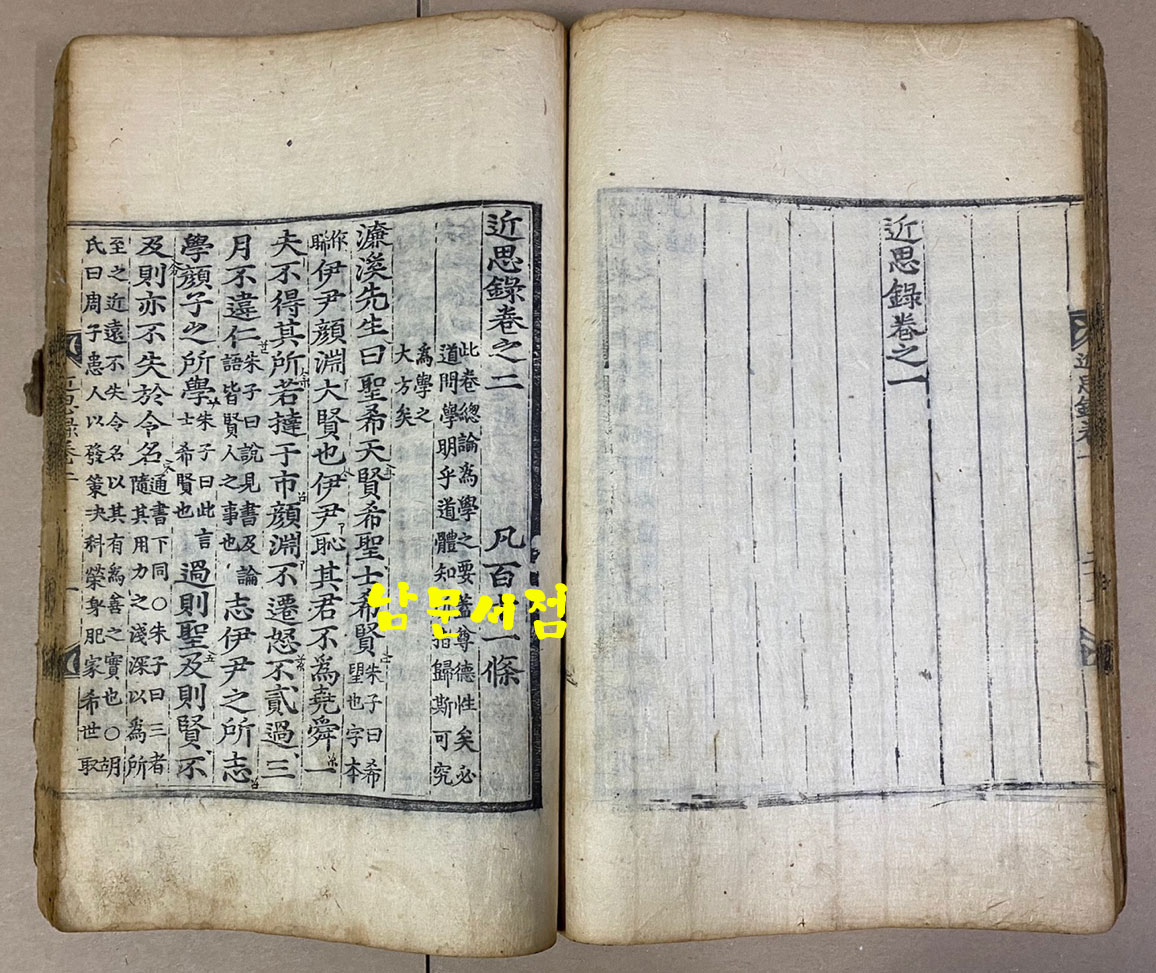 近思錄卷之一
近思錄卷一
近思錄卷之二 凡百 一條
此卷總論爲學之要蓋尊德性矣必
道問學明乎道體知 指歸斯可究
爲學之
大方矣
濂溪先生曰聖希天賢希聖士希賢 朱子曰希
望也字本
作
睎
伊尹顏淵大賢也伊尹恥其君不爲堯舜一
夫不得其所若撻于市顏淵不遷怒不貳過三
月不違仁 朱子曰說見書及論
語皆賢人之事也
志伊尹之所志
學顏子之所學 朱子曰此言
士希賢也
過則聖及則賢不
及則亦不失於令名 通書下同○朱子曰三者
隨其用力之淺深以爲所
至之近遠不失令名以其有爲善之實也○胡
氏曰周子患人以發策決科榮身肥家希世取
남문서점